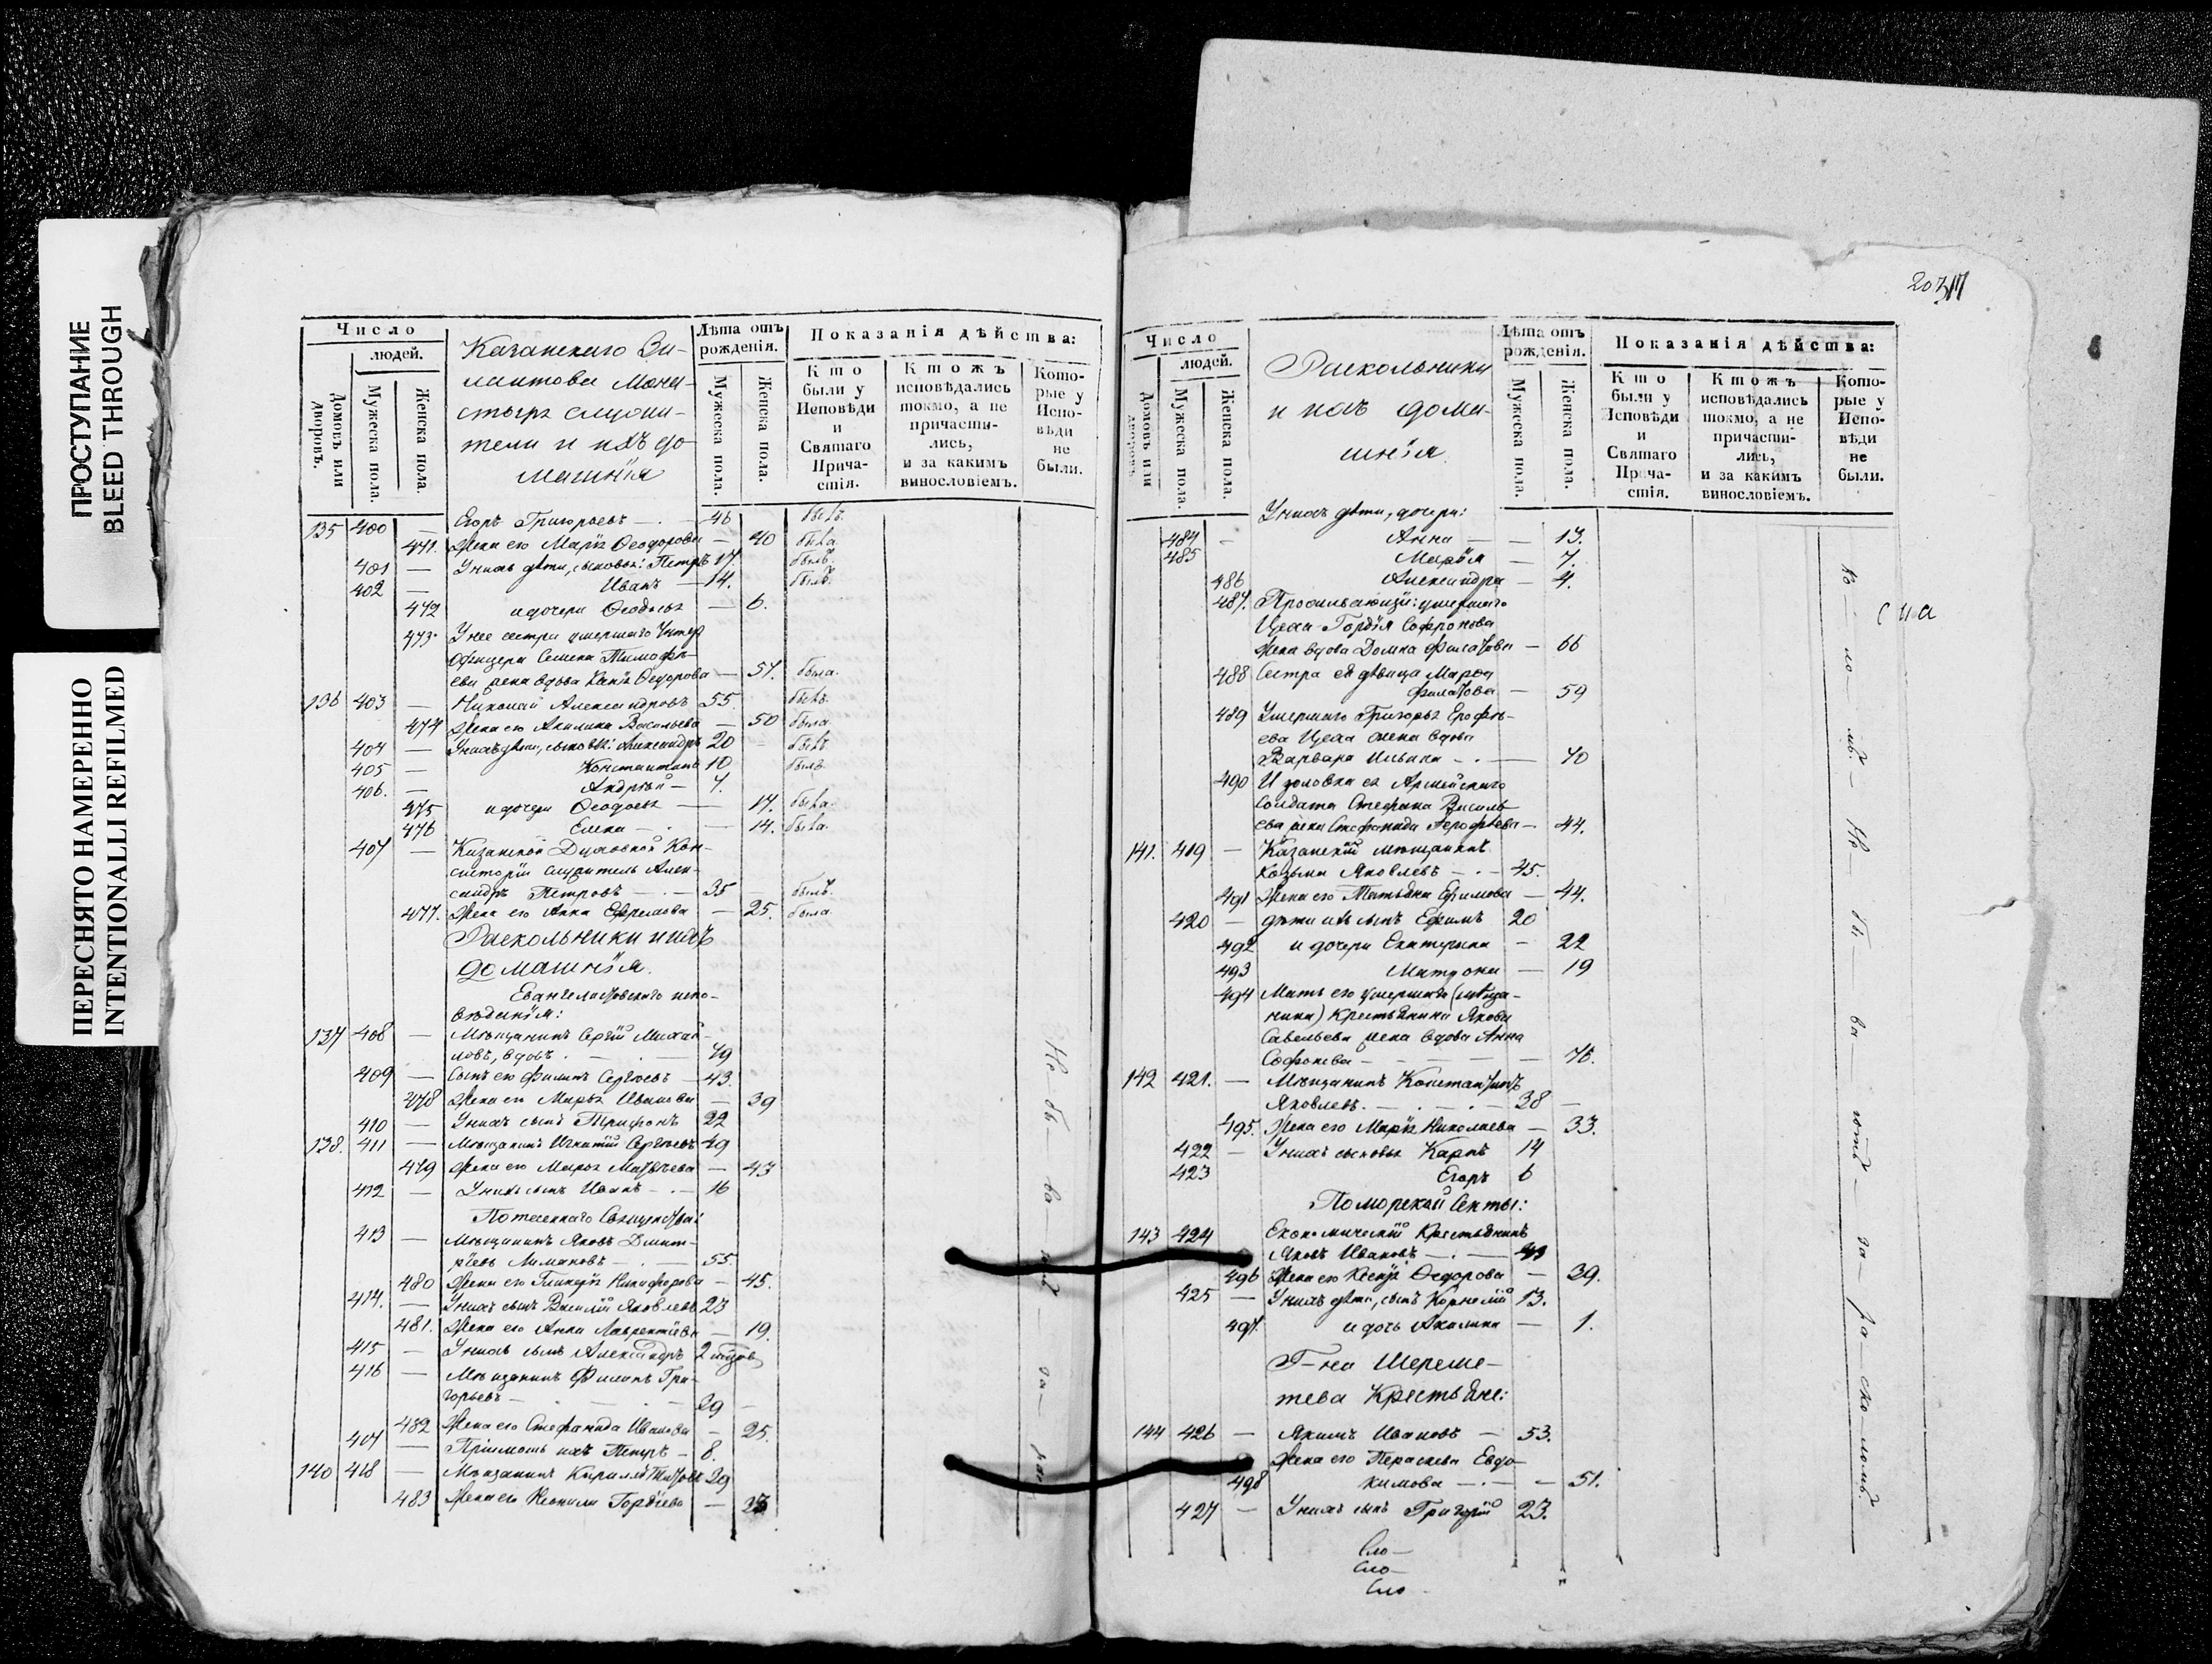 ПРОСТУПАНИЕ
BLEED THROUGH
ПЕРЕСНЯТО НАМЕРЕННО
INTENTIONALLI REFILMED
Число
людей.
Домовъ или дворовъ.
Мужеска пола.
Женска пола.
Казанскаго Зи-
лантова Мона-
стыря служи-
тели и ихъ до
машнія
Лѣта отъ рожденія.
Мужеска пола.
Женска пола.
Показанія дѣйства:
Кто были у Исповѣди и Святаго Причастія.
Ктожъ исповѣдались токмо, а не причастились, и за какимъ винословіемъ.
Которые у Исповѣди не были.
135 400 — Егоръ Григорьевъ — 46 былъ
471. Жена его Марья Ѳеодорова — 40 была
401 — У нихъ дѣти, сыновья: Петръ 17. былъ
402 — Иванъ — 14. былъ.
472 и дочери Ѳеодосья — 6.
473. У нее сестра умершаго Унтер
Офицера Семена Тимофѣ-
ева жена вдова Ксенія Ѳедорова — 57. была
136 403 — Николай Александровъ 55. былъ
474 Жена его Акилина Васильева — 50 была
404 — У нихъ дѣти, сыновья: Александръ 20 былъ
405 — Константинъ 10 былъ
406. — Андрей — 7.
475 и дочери Ѳеодосья — 17. была
476 Елена — 14. была
407 — Казанской Духовной Кон-
систоріи служитель Алек-
сандръ Петровъ — 35 былъ
477. Жена его Анна Ефремова — 25. была
Раскольники и ихъ
домашнія.
137 408 — Мѣщанинъ Сергій Михай-
ловъ, вдовъ — 79
409 — Сынъ его Филипъ Сергѣевъ — 43.
478 Жена его Марья Иванова — 39
410 — У нихъ сынъ Трифонъ 22
138. 411 — Мѣщанинъ Игнатій Сергѣевъ 49
479 Жена его Марья Матвѣева — 43
412 — У нихъ сынъ Иванъ — 16
413 — Мѣщанинъ Яковъ Дмит-
ріевъ Лимановъ — 55.
480 Жена его Гликерія Никифорова — 45.
414. — У нихъ сынъ Василій Яковлевъ 23
481. Жена его Анна Лаврентіева — 19.
415 — У нихъ сынъ Александръ 2
416 — Мѣщанинъ Филипъ Гри-
горьевъ — 29
482 Жена его Стефанида Иванова — 25.
— Пріимышъ ихъ Петръ — 8.
140 418 — Мѣщанинъ Кириллъ Титовъ 29
483 Жена его Гордіева —
Число
людей.
Домовъ или дворовъ.
Мужеска пола.
Женска пола.
Раскольники
и ихъ дома-
шнія
Лѣта отъ рожденія.
Мужеска пола.
Женска пола.
Показанія дѣйства:
Кто были у Исповѣди и Святаго Причастія.
Ктожъ исповѣдались токмо, а не причастились, и за какимъ винословіемъ.
Которые у Исповѣди не были.
У нихъ дѣти, дочери:
484 — Анна — — 13.
485 Марія — 7.
486 Александра — 4.
487. умершаго
Цеха Гордѣя Софронова
жена вдова Домна Филатова — 66
488 Сестра ея дѣвица Марѳа
Филатова — 59
489 Умершаго Григорья Ерофѣ-
ева Цеха жена вдова
Варвара Ильина — 70
490 И золовка ея Армейскаго
Солдата Стефана Василь-
ева жена Стефанида Ерофѣева — 44.
141. 419 — Казанскій мѣщанинъ
Козьма Яковлевъ — 45.
491 Жена его Татьяна Ефимова — 44.
420 — дѣти ихъ сынъ Ефимъ 20
492 и дочери Екатерина — 22
493 Матрона — 19
494 Мать его умершаго (мѣща-
нина) Крестьянина Якова
Савельева жена вдова Анна
142 421. — Мѣщанинъ Константинъ
Яковлевъ. — 38 —
495. Жена его Марья Николаева — 33.
422 — У нихъ сыновья Карпъ 14
423 Егоръ 6
Поморской Секты:
143 424 Економическій Крестьянинъ
Яковъ Ивановъ —
496 Жена его Ксенія Ѳедорова — 39.
425 — У нихъ дѣти, сынъ Корнелій 13.
497. и дочь Акилина — 1.
Г-на Шереме-
тева Крестьяне:
144 426 — Якимъ Ивановъ — 53.
Жена его Параскева Евдо-
498 кимова — 51.
427 — У нихъ сынъ Григорій 23.